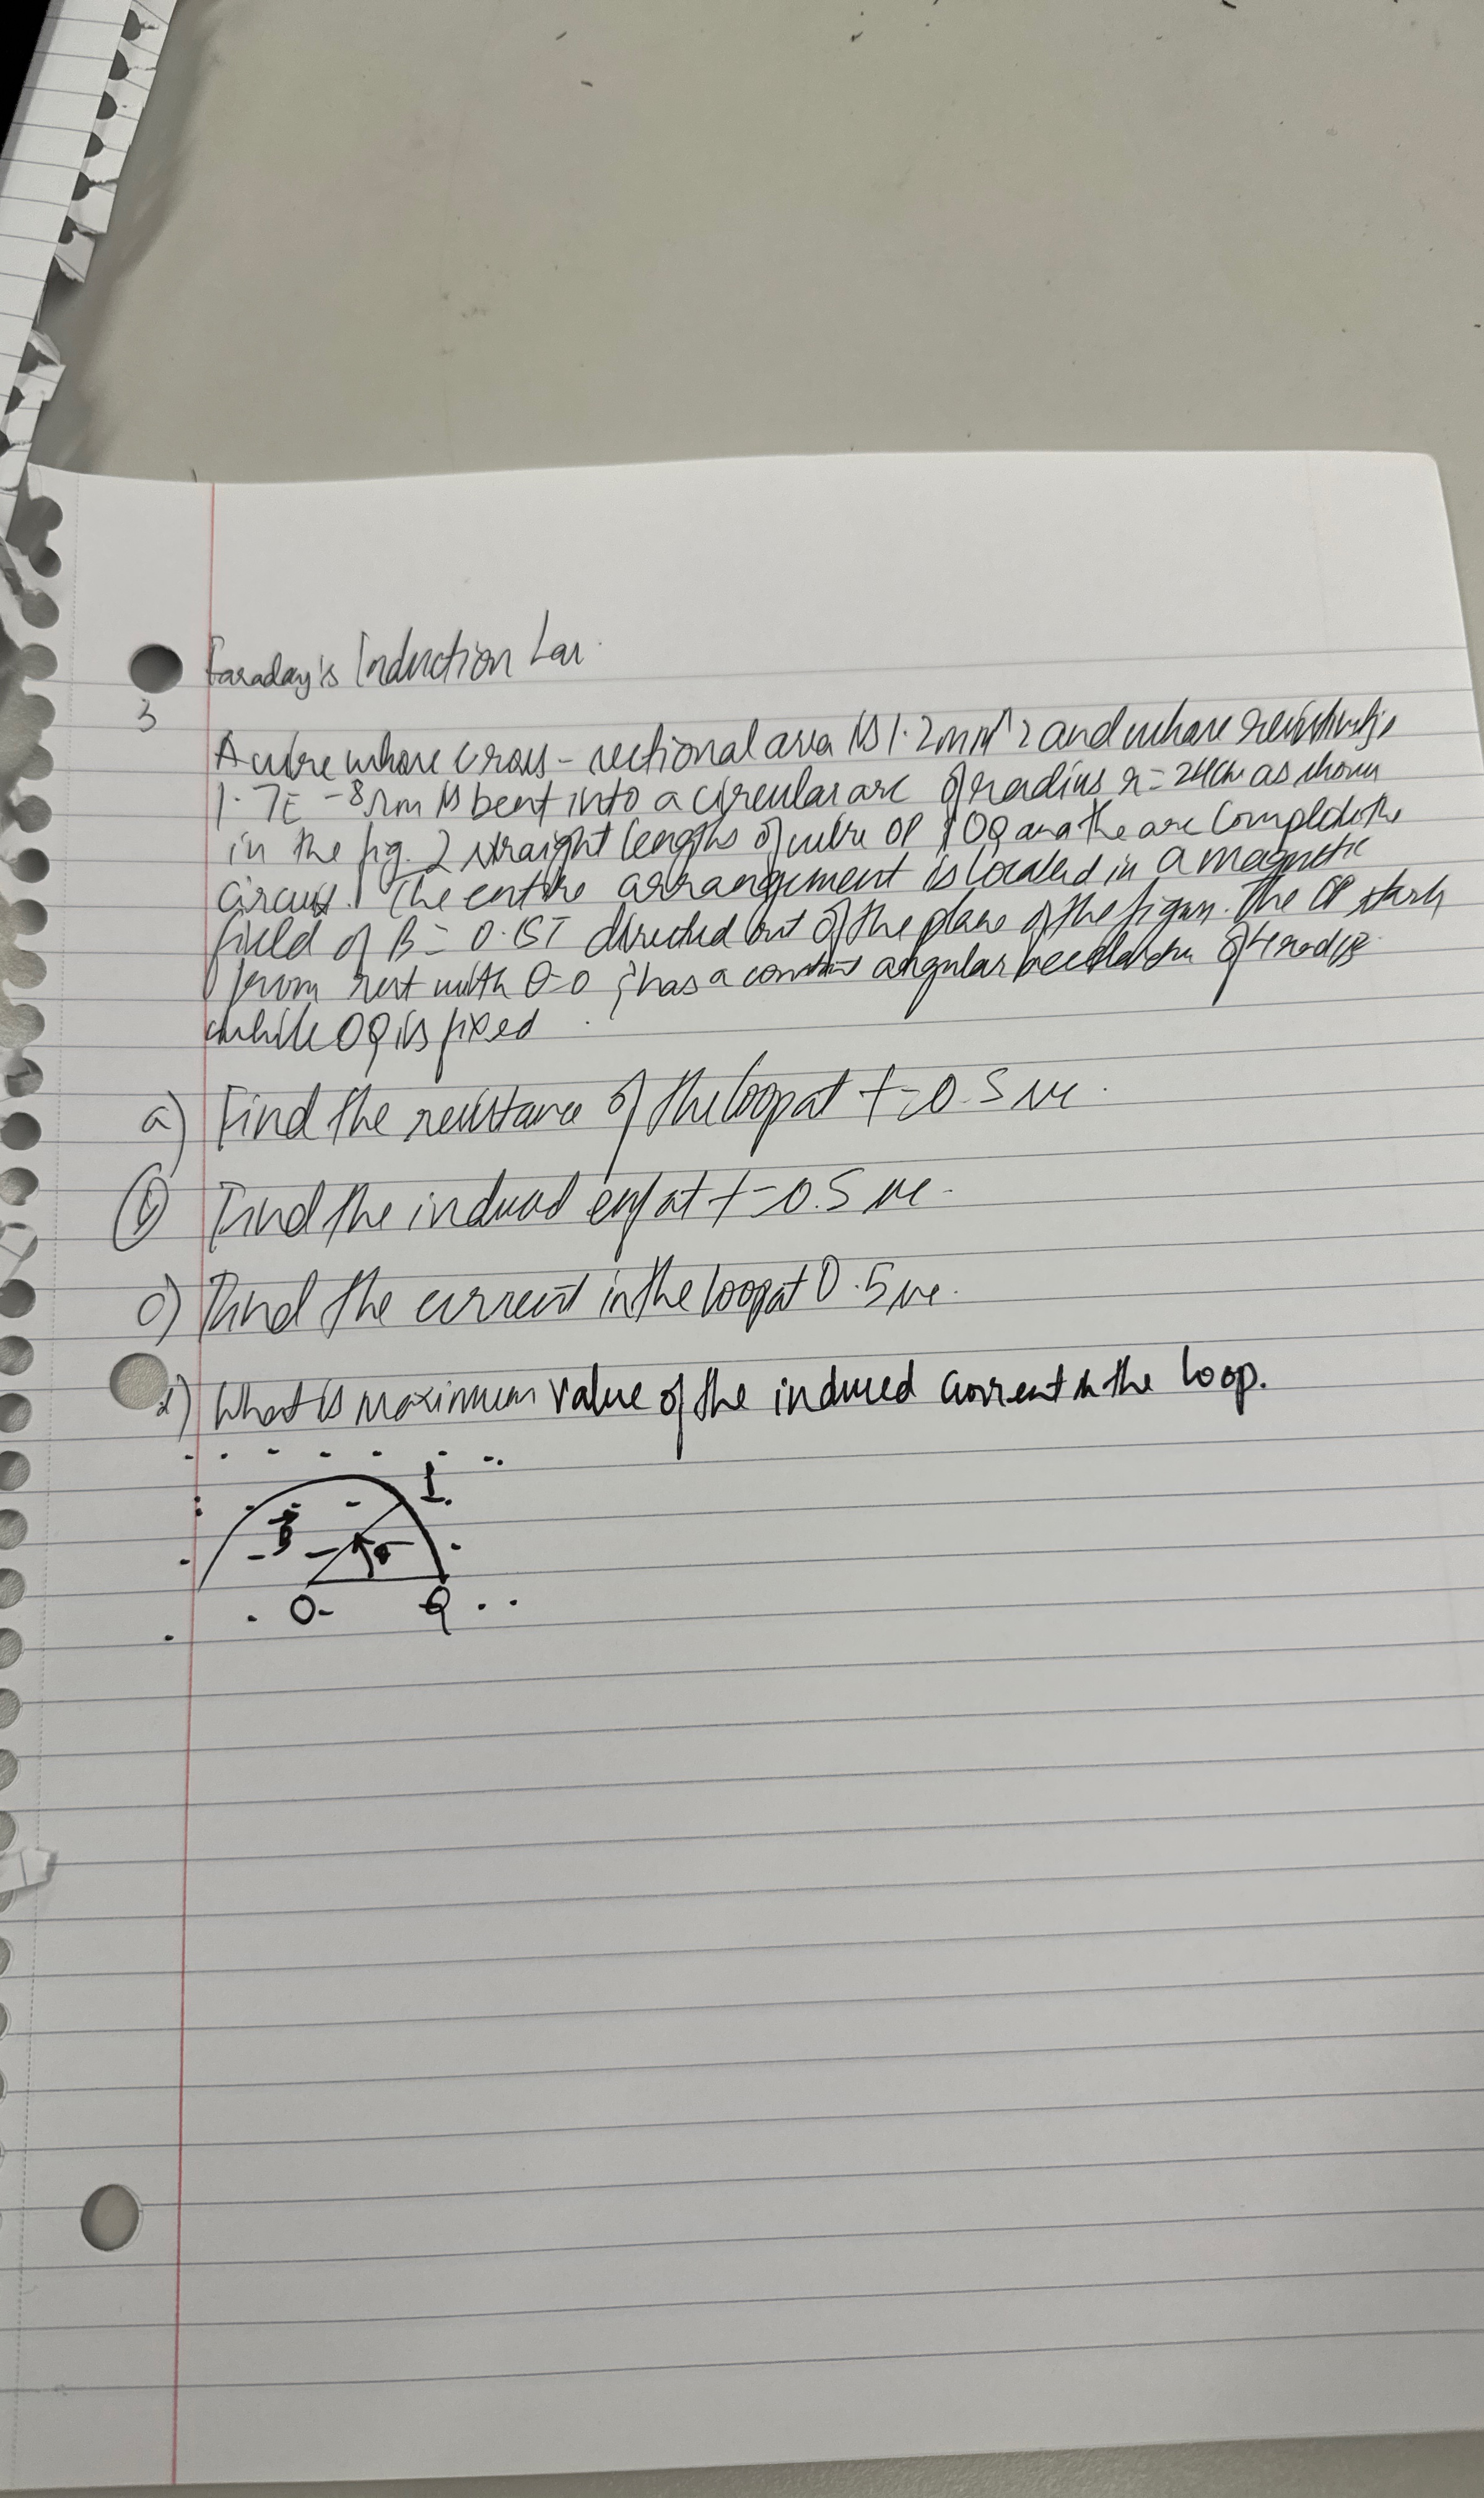 Faraday's Induction Law
3
A wire whose cross-sectional area is 1.2mm^2 and whose resistivity is
1.7E-8Ωm is bent into a circular arc of radius r=24cm as shown
in the fig. 2 straight lengths of wire OP & OQ and the arc complete the
circuit. The entire arrangement is located in a magnetic
field of B= 0.15T directed out of the plane of the figure. The OP starts
from rest with θ=0 & has a constant angular acceleration of 4 rad/s²
while OQ is fixed.
a) Find the resistance of the loop at t=0.5 sec.
b) Find the induced emf at t=0.5 sec.
c) Find the current in the loop at 0.5 sec.
d) What is maximum value of the induced current in the loop.
B
θ
O
Q